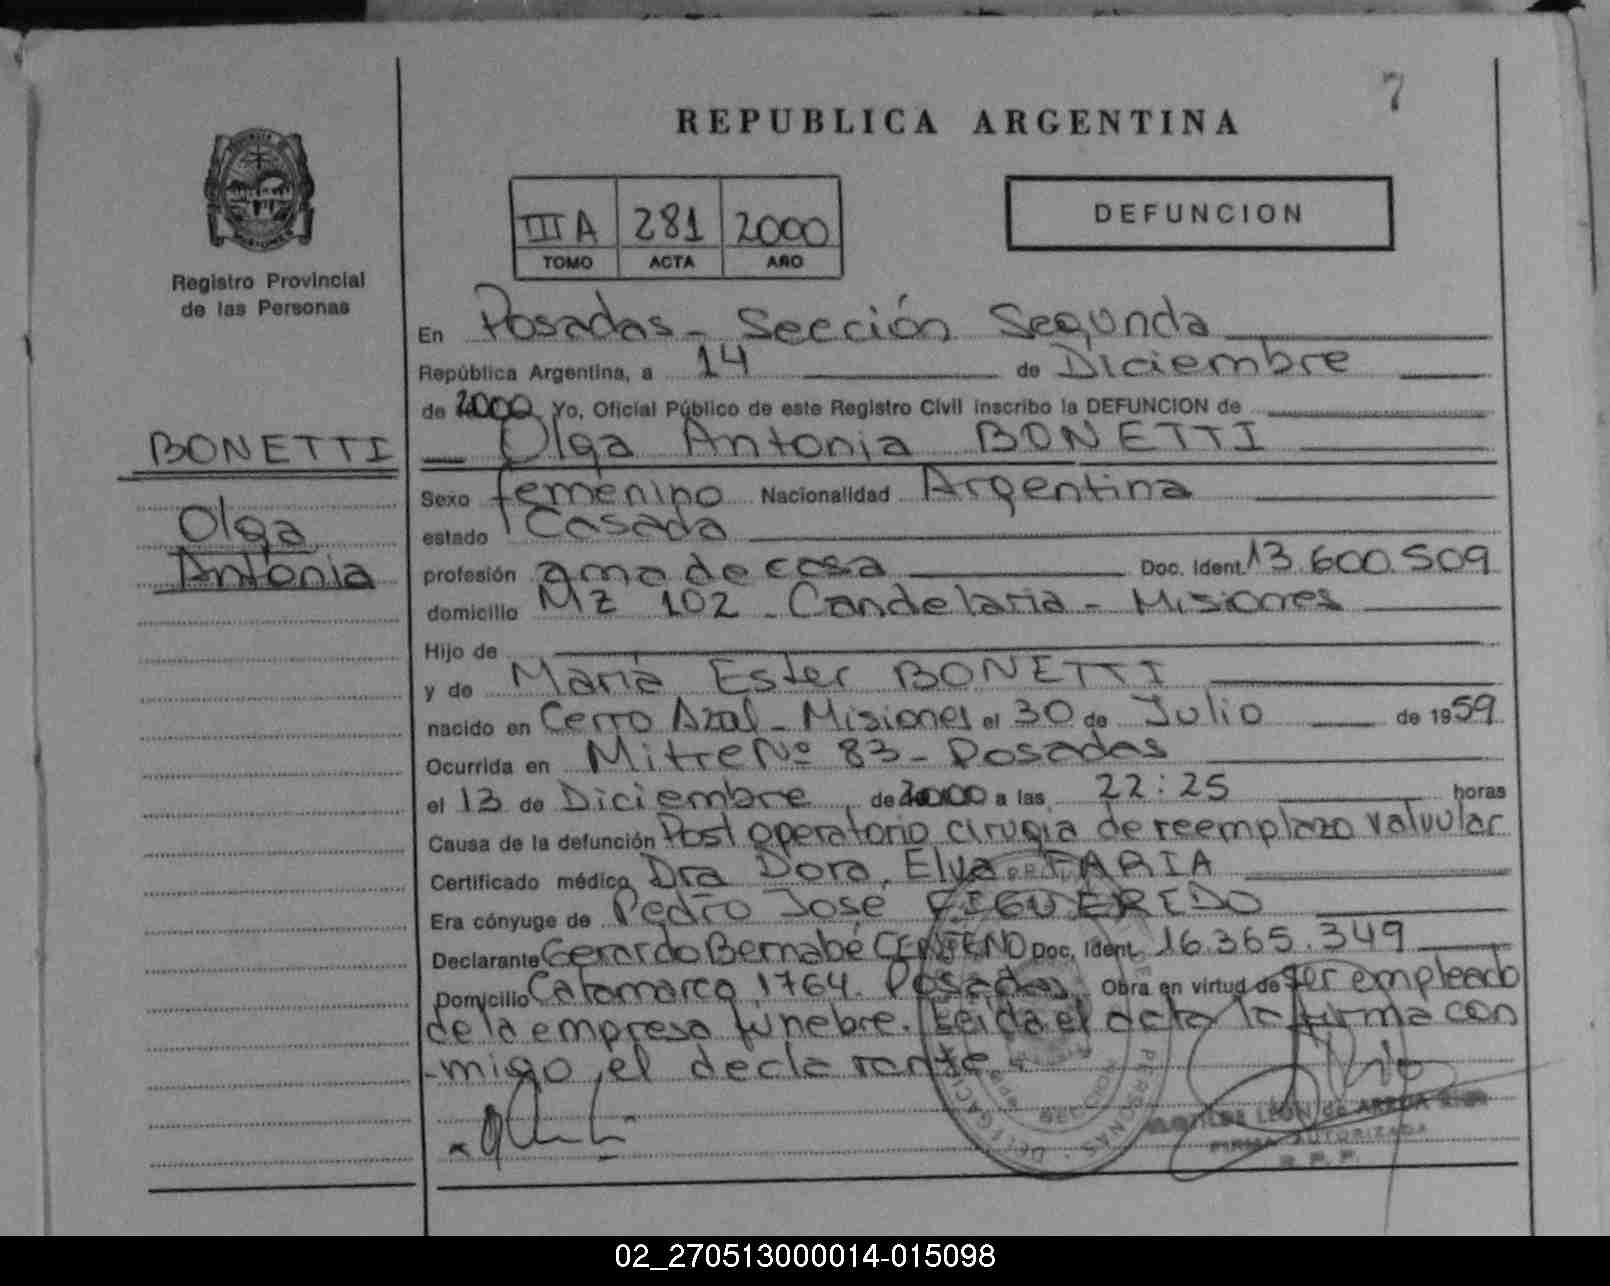 7
REPUBLICA ARGENTINA
III A 281 2000
TOMO ACTA AÑO
DEFUNCION
Registro Provincial
de las Personas
BONETTI
Olga
Antonia
En Posadas - Sección Segunda
República Argentina, a 14 de Diciembre
de 2000 Yo, Oficial Público de este Registro Civil inscribo la DEFUNCION de
Olga Antonia BONETTI
Sexo femenino Nacionalidad Argentina
estado Casada
profesión ama de casa Doc. Ident. 13.600.509
domicilio Mz 102 - Candelaria - Misiones
Hijo de
y de María Ester BONETTI
nacido en Cerro Azul - Misiones el 30 de Julio de 1959
Ocurrida en Mitre Nº 83 - Posadas
el 13 de Diciembre de 2000 a las 22:25 horas
Causa de la defunción Post operatorio cirugia de reemplazo valvular
Certificado médico Dra Dora Elva FARIA
Era cónyuge de Pedro José FIGUEREDO
Declarante Gerardo Bernabé CENTENO Doc. Ident. 16.365.349
Domicilio Catamarca 1764. Posadas Obra en virtud de ser empleado
de la empresa fúnebre. Leida el acta la firma con
-migo, el declarante.
LEON de
FIRMA AUTORIZADA
R. P. P.
02_270513000014-015098